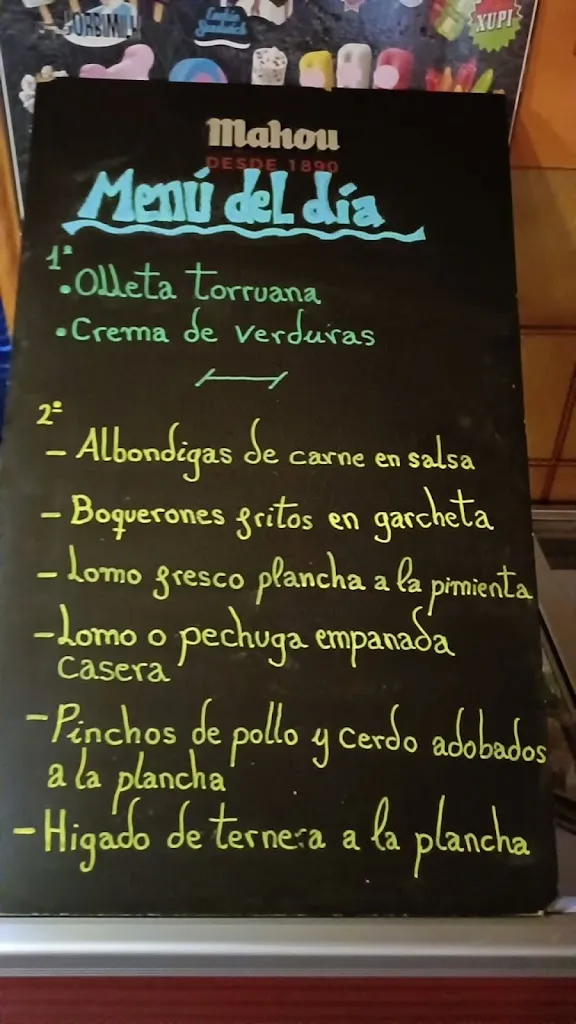 JORBIMILK
XUPI
Mahou
DESDE 1890
Menú del día
1º
• Olleta torruana
• Crema de verduras
2º
- Albondigas de carne en salsa
- Boquerones fritos en garcheta
- Lomo fresco plancha a la pimienta
- Lomo o pechuga empanada
casera
- Pinchos de pollo y cerdo adobados
a la plancha
- Higado de ternera a la plancha